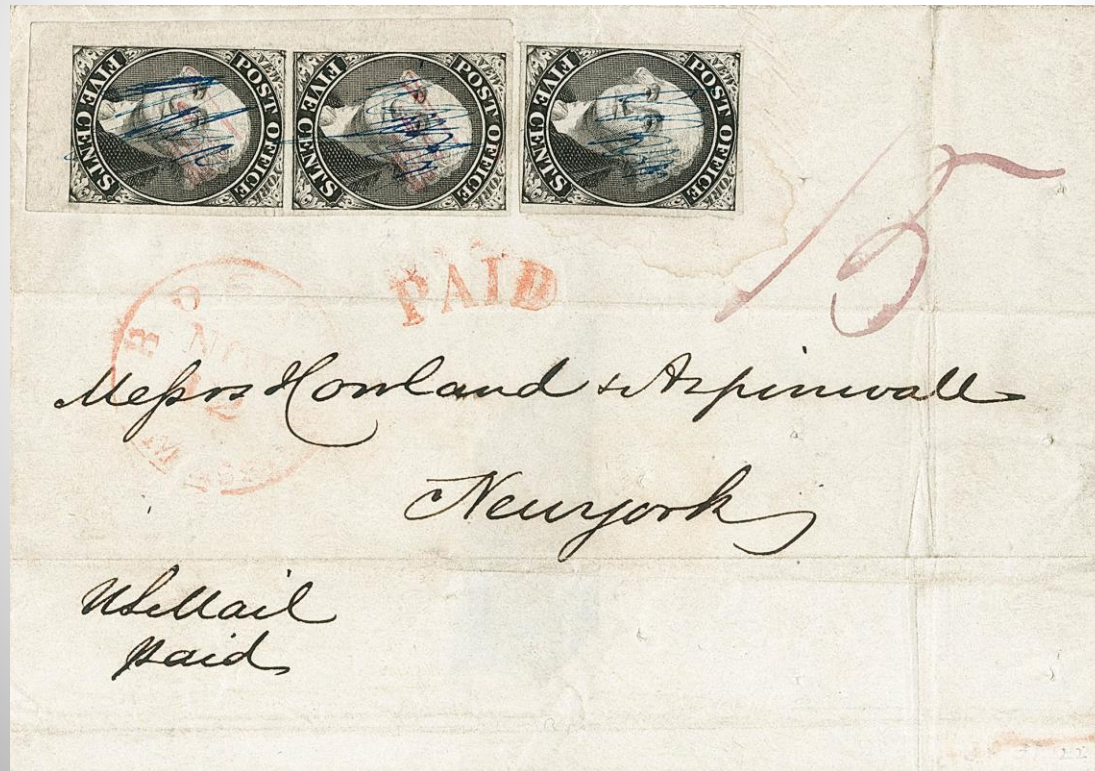 POST OFFICE
FIVE CENTS
POST OFFICE
FIVE CENTS
POST OFFICE
FIVE CENTS
15
PAID
NOV
12
Messrs Howland & Aspinwall
Newyork
US Mail
paid